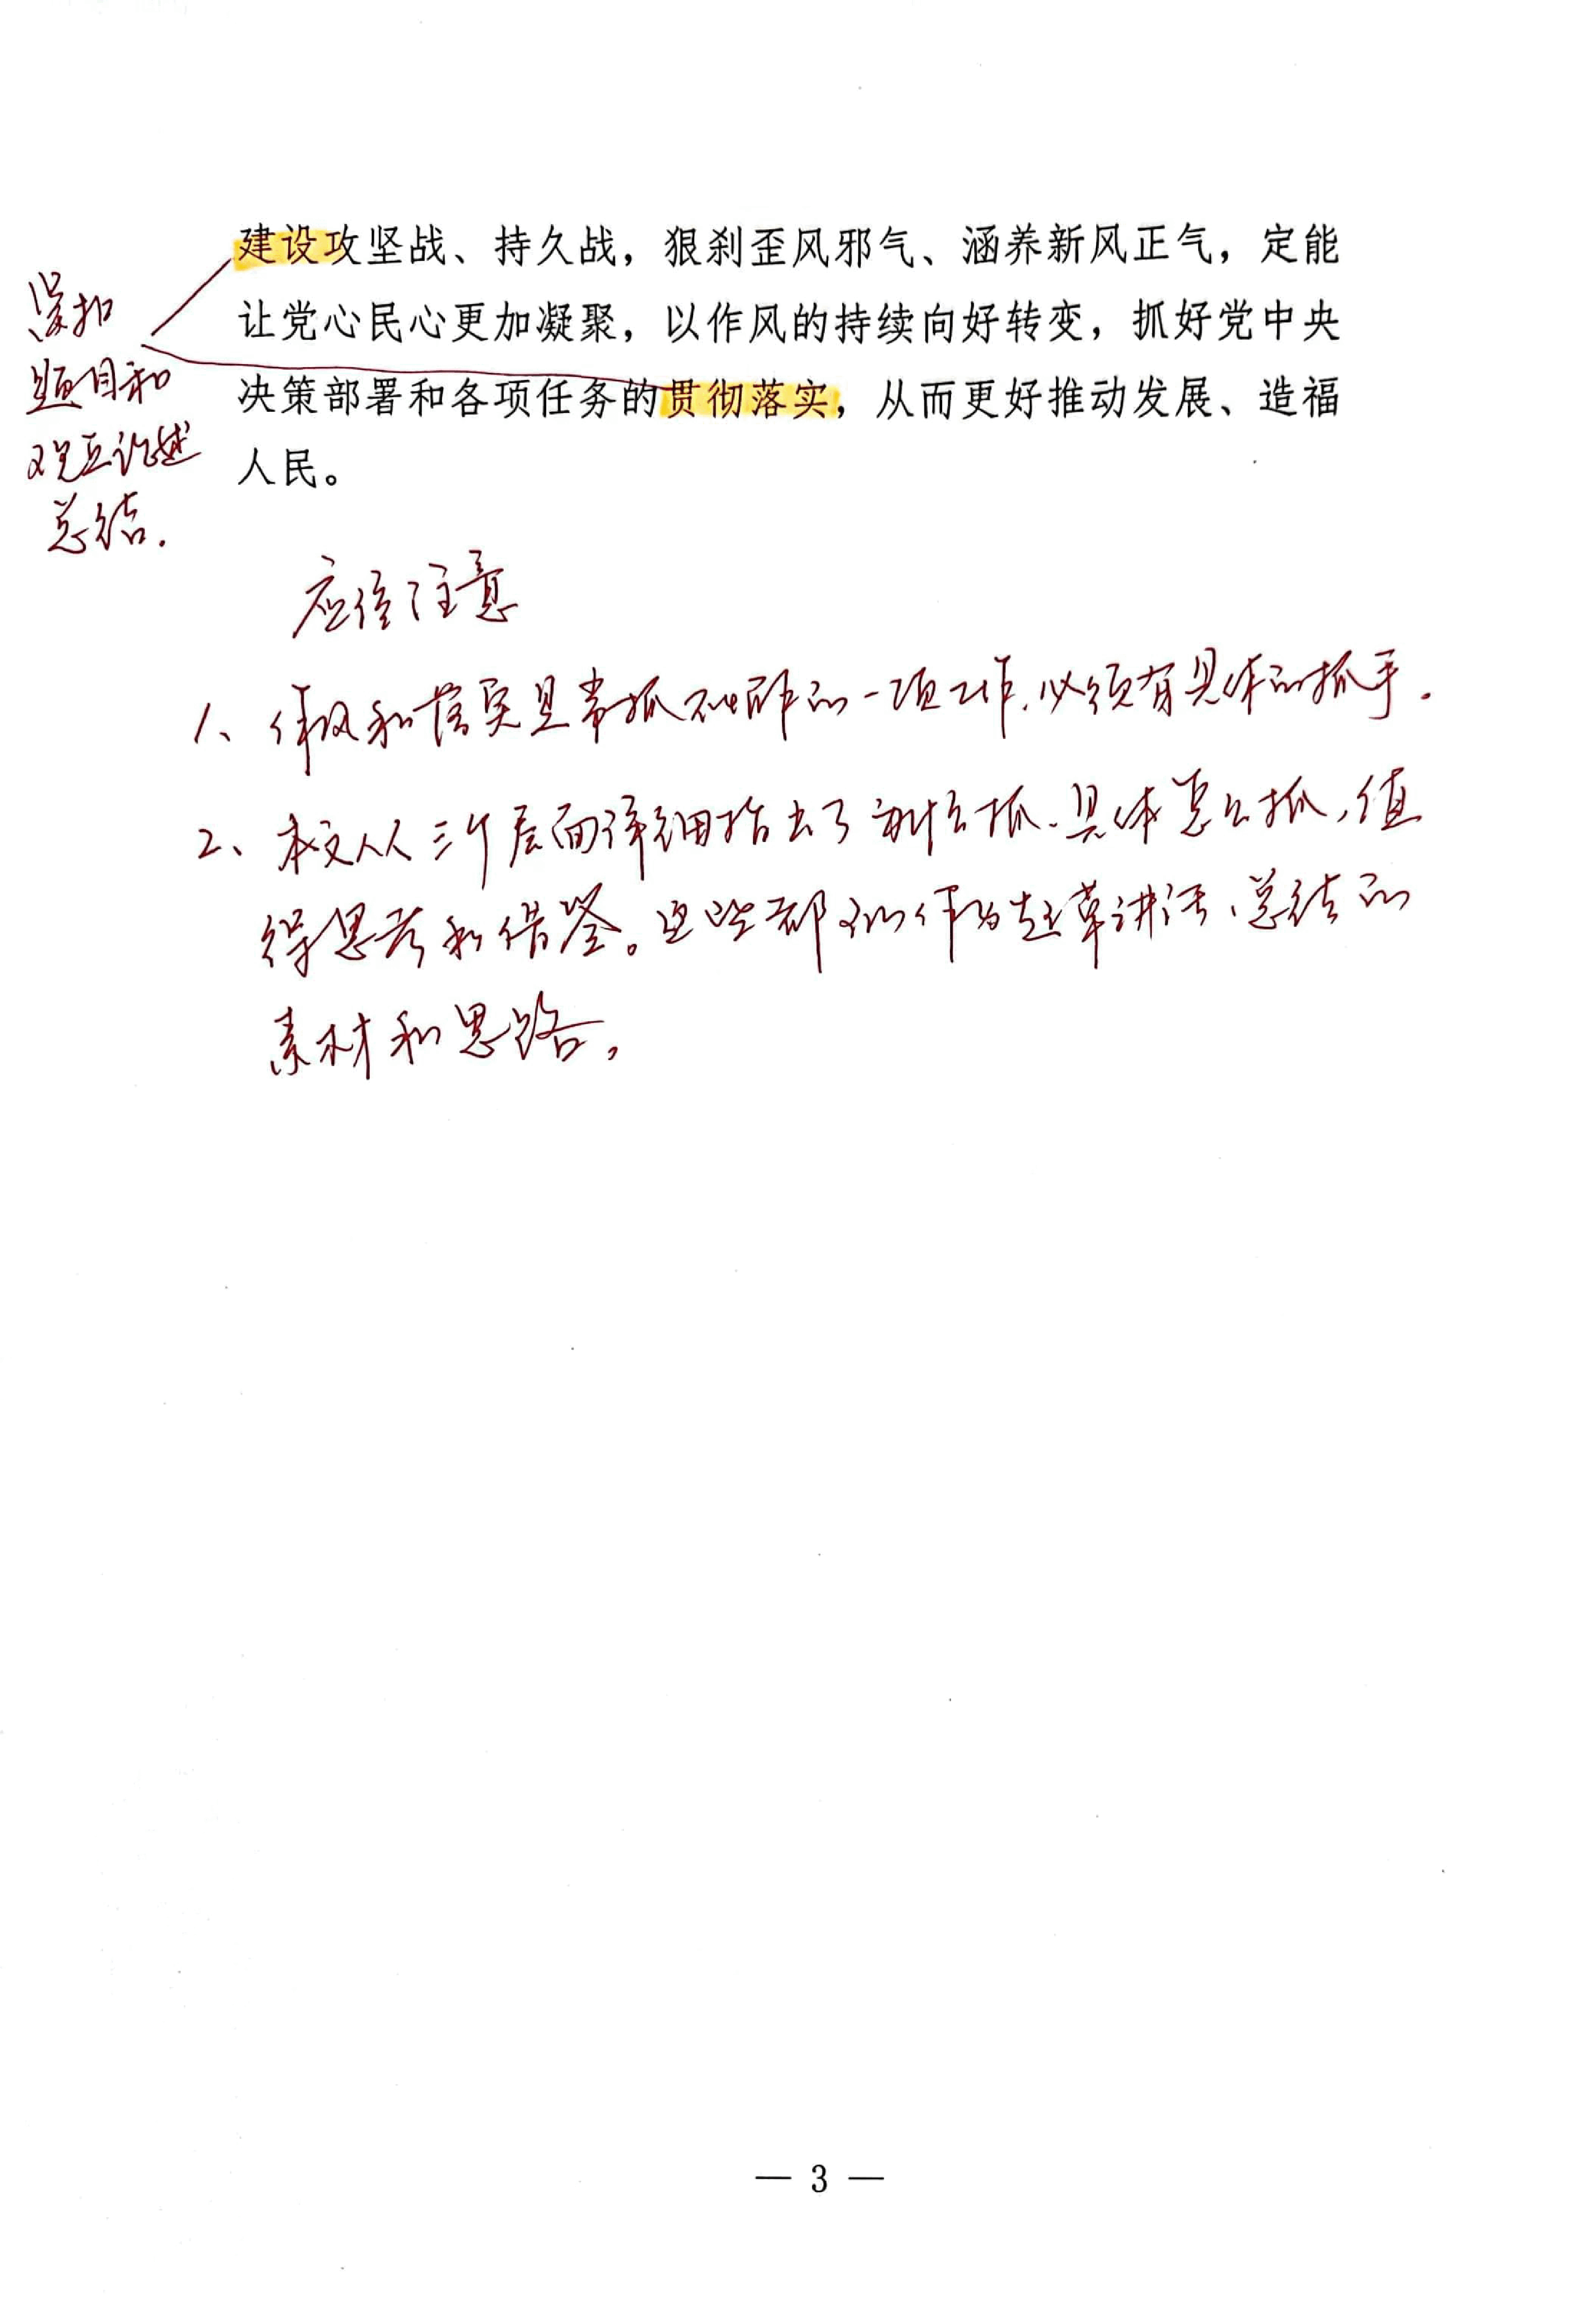 建设攻坚战、持久战，狠刹歪风邪气、涵养新风正气，定能
让党心民心更加凝聚，以作风的持续向好转变，抓好党中央
决策部署和各项任务的贯彻落实，从而更好推动发展、造福
人民。
紧扣
题目和
观点论述
总结.
应注意
1、作风和落实是常抓不懈的一项工作.必须有具体的抓手.
2、本文从三个层面详细指出了抓、具体怎么抓，值
得思考和借鉴。这些都可以作为起草讲话、总结的
素材和思路。
— 3 —